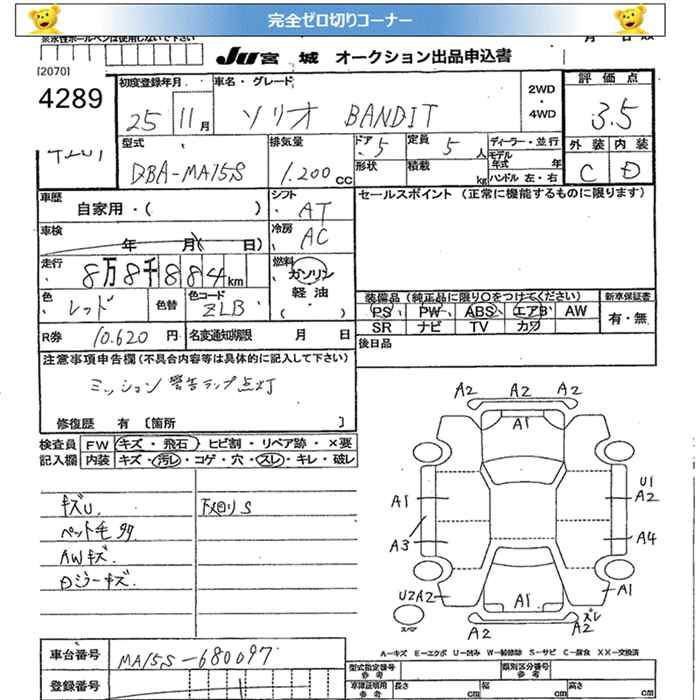 完全ゼロ切りコーナー
泉水性ボールペンは使用しないで下さい
月
JU 宮城 オークション出品申込書
[2070]
4289
初度登録年月
25 11月
車名・グレード
ソリオ BANDIT
2WD
・
4WD
評価点
3.5
外装 内装
C D
型式
DBA-MA15S
排気量
1.200 cc
ドア 5
定員 5 人
形状
積載 kg
ディーラー・並行
モデル年式 年
ハンドル 左・右
車歴
自家用・( )
シフト
AT
セールスポイント (正常に機能するものに限ります)
車検
年 月( 日)
冷房
AC
走行
8万8千884km
燃料
ガソリン
軽油
( )
色
レッド
色替
色コード
ZLB
装備品 (純正品に限り○をつけてください)
新車保証書
PS PW ABS エアB AW
SR ナビ TV カワ
有・無
R券 10.620 円
名変通知期限 月 日
後日品
注意事項申告欄 (不具合内容等は具体的に記入して下さい)
ミッション 警告ランプ点灯
修復歴 有 [箇所 ]
検査員
記入欄
FW キズ・飛石 ヒビ割・リペア跡・×要
内装 キズ・汚レ・コゲ・穴・スレ・キレ・破レ
キズU.
ペット毛多
AWキズ.
下廻りS
A2 A2 A2
A1
A1
A3
U1
A2
A4
U2A2
A1
A1
スペア
A2
ズレ
A2
A-キズ E-エクボ U-凹み W-補修跡 S-サビ C-腐食 XX-交換済
車台番号
MA15S-680097
登録番号
型式指定番号
参考
類別区分番号
参考
車諸証明用
参考
長さ cm
幅 cm
高さ cm